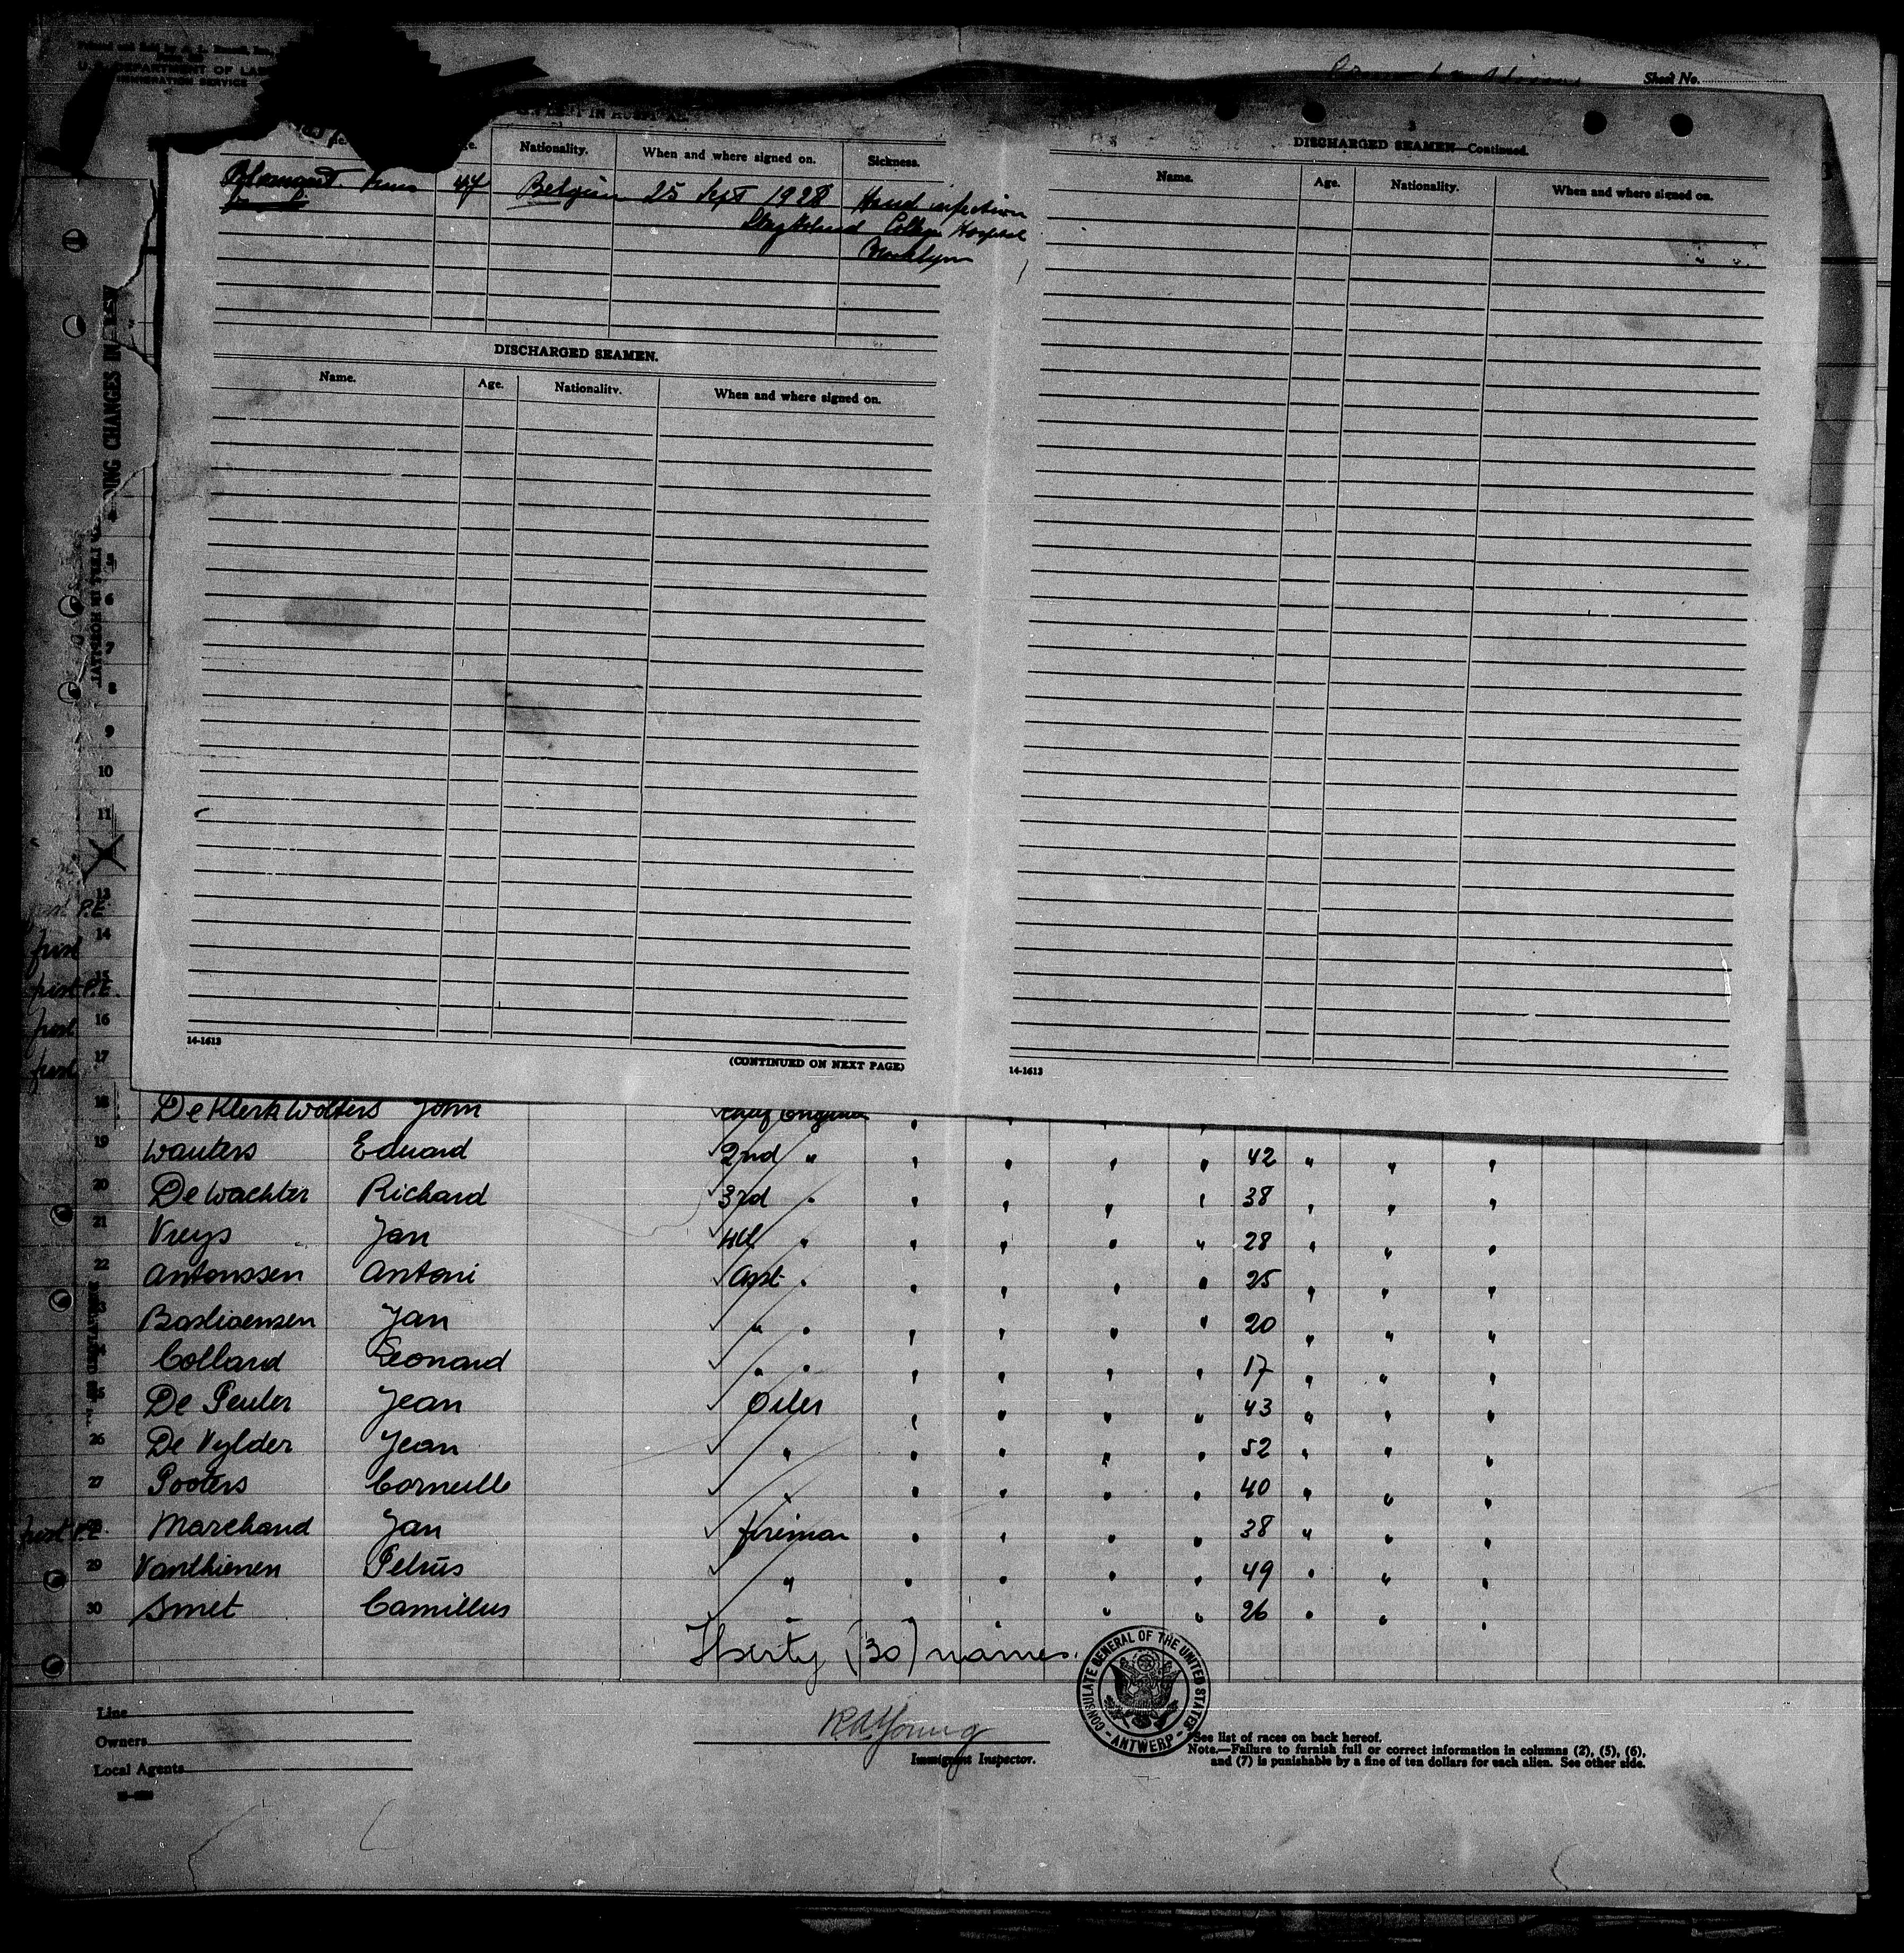 U. S. DEPARTMENT OF LABOR
IMMIGRATION SERVICE
Sheet No.
LEFT IN HOSPITAL
Nationality. When and where signed on. Sickness.
47 Belgian 25 Sept 1928 Hand infection
College Hospital
Brooklyn
DISCHARGED SEAMEN.
Name. Age. Nationality. When and where signed on.
14-1613
(CONTINUED ON NEXT PAGE)
3
DISCHARGED SEAMEN—Continued.
Name. Age. Nationality. When and where signed on.
14-1613
CHANGES IN CREW
LEFT IN HOSPITAL
6
7
8
9
10
11
13 P.E.
14 first
15 first P.E.
16 first
17 first
18 De Klerk Wolters John Chief Engineer
19 Wauters Eduard 2nd " 42
20 De Wachter Richard 3rd " 38
21 Vreys Jan 4th " 28
22 Antonssen Antoni Asst " 25
23 Bastiaensen Jan " " 20
24 Collard Leonard " " 17
25 De Peuter Jean Oiler 43
26 De Vylder Jean " 52
27 Pooters Corneille " 40
28 first P.E. Marchand Jan fireman 38
29 Vanthienen Petrus " 49
30 Smet Camillus " 26
Therty (30) names.
Line
Owners
Local Agents
R A Young
Immigrant Inspector.
CONSULATE GENERAL OF THE UNITED STATES
ANTWERP
See list of races on back hereof.
Note.—Failure to furnish full or correct information in columns (2), (5), (6),
and (7) is punishable by a fine of ten dollars for each alien. See other side.